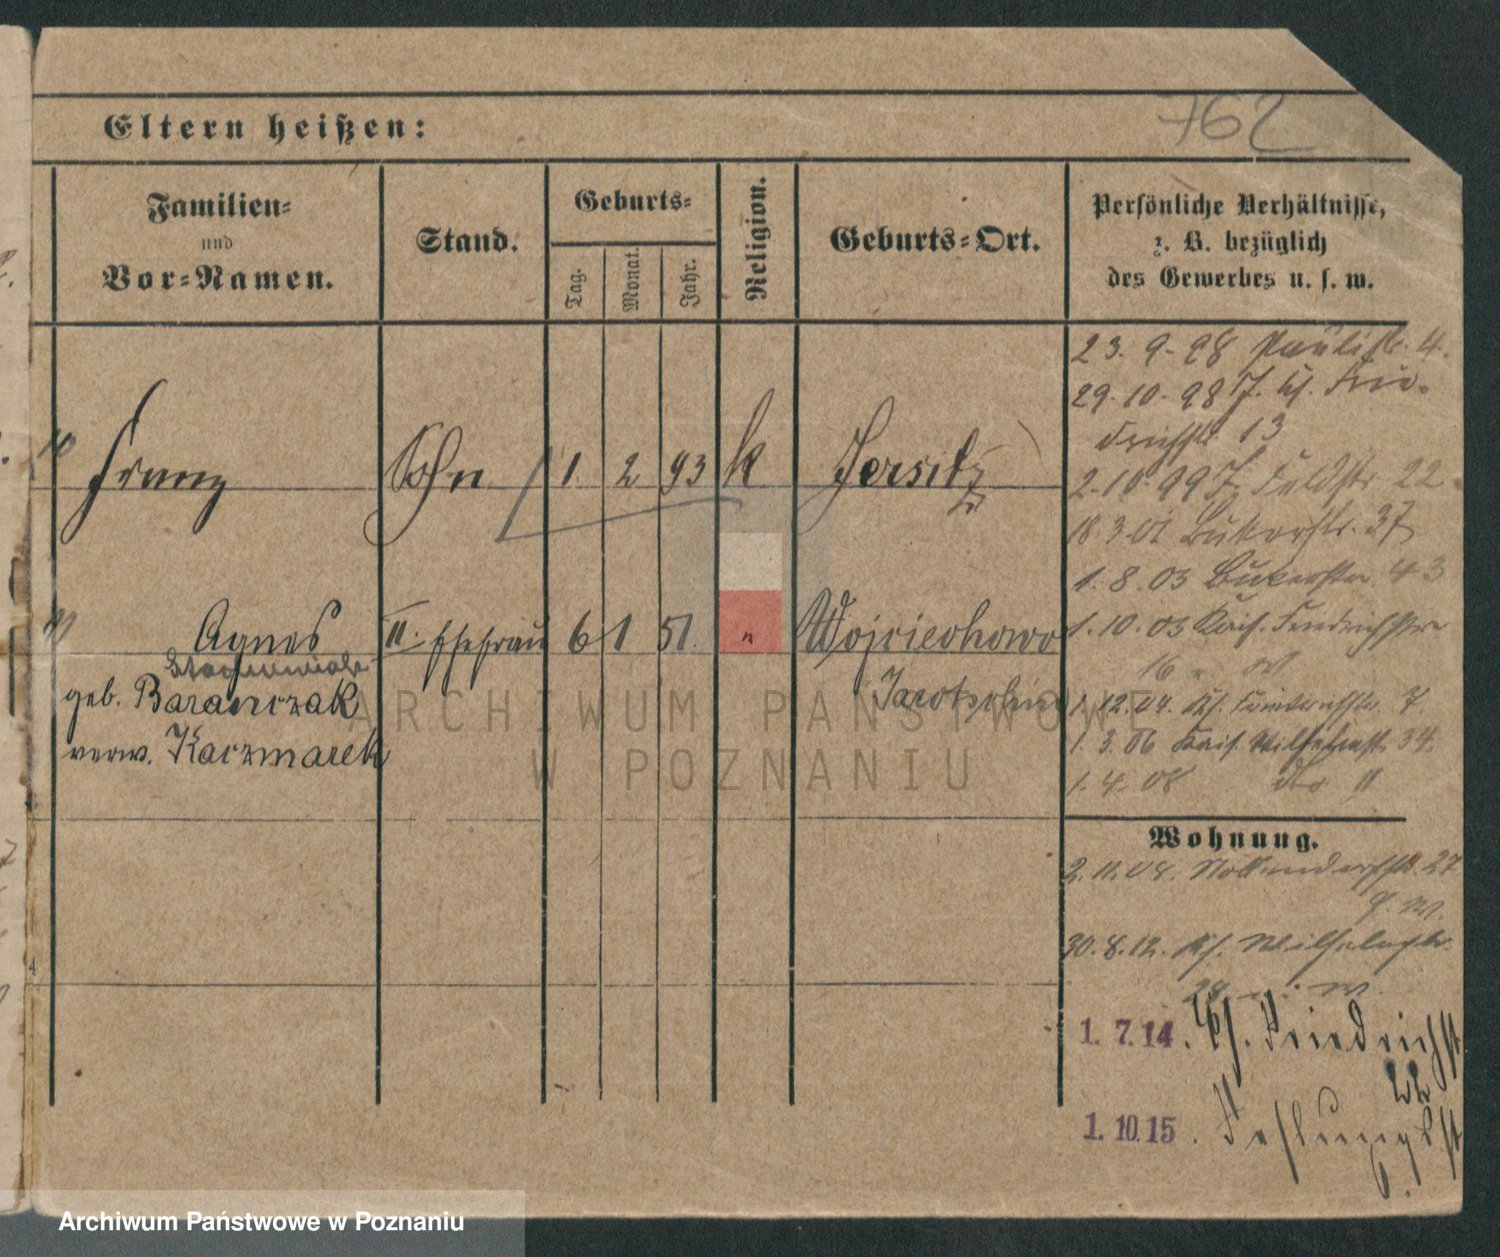 762
Eltern heißen:
Familien=
und
Vor=Namen.
Stand.
Geburts=
Tag.
Monat.
Jahr.
Religion.
Geburts=Ort.
Persönliche Verhältnisse,
z. B. bezüglich
des Gewerbes u. s. w.
23. 9. 98 Paulistr. 4.
29. 10. 98 J. Kf. Frie-
drichstr. 13
2. 10 99 J. Feldstr. 22
18. 3. 01 Bukerstr. 37
1. 8. 03 Bukerstr. 43
1. 10. 03 Kais. Friedrichstr
16
1. 12. 04. Kf. Friedrichstr. 7.
1. 3. 06 Kais. Wilhelmstr. 34.
1. 4. 08 dto "
Franz Sohn 1. 2 93 k Jersitz
Agnes II. Ehefrau 6 1 51. " Wojciechowo
geb. Baranczak Jarotschin
verw. Kaczmarek
Wohnung.
2. 11. 08. Nollendorfstr. 27
30. 8. 12. Kf. Wilhelmstr.
28 W.
1. 7. 14. Kf. Friedrichst
22
1. 10. 15.
ARCHIWUM PAŃSTWOWE
W POZNANIU
Archiwum Państwowe w Poznaniu